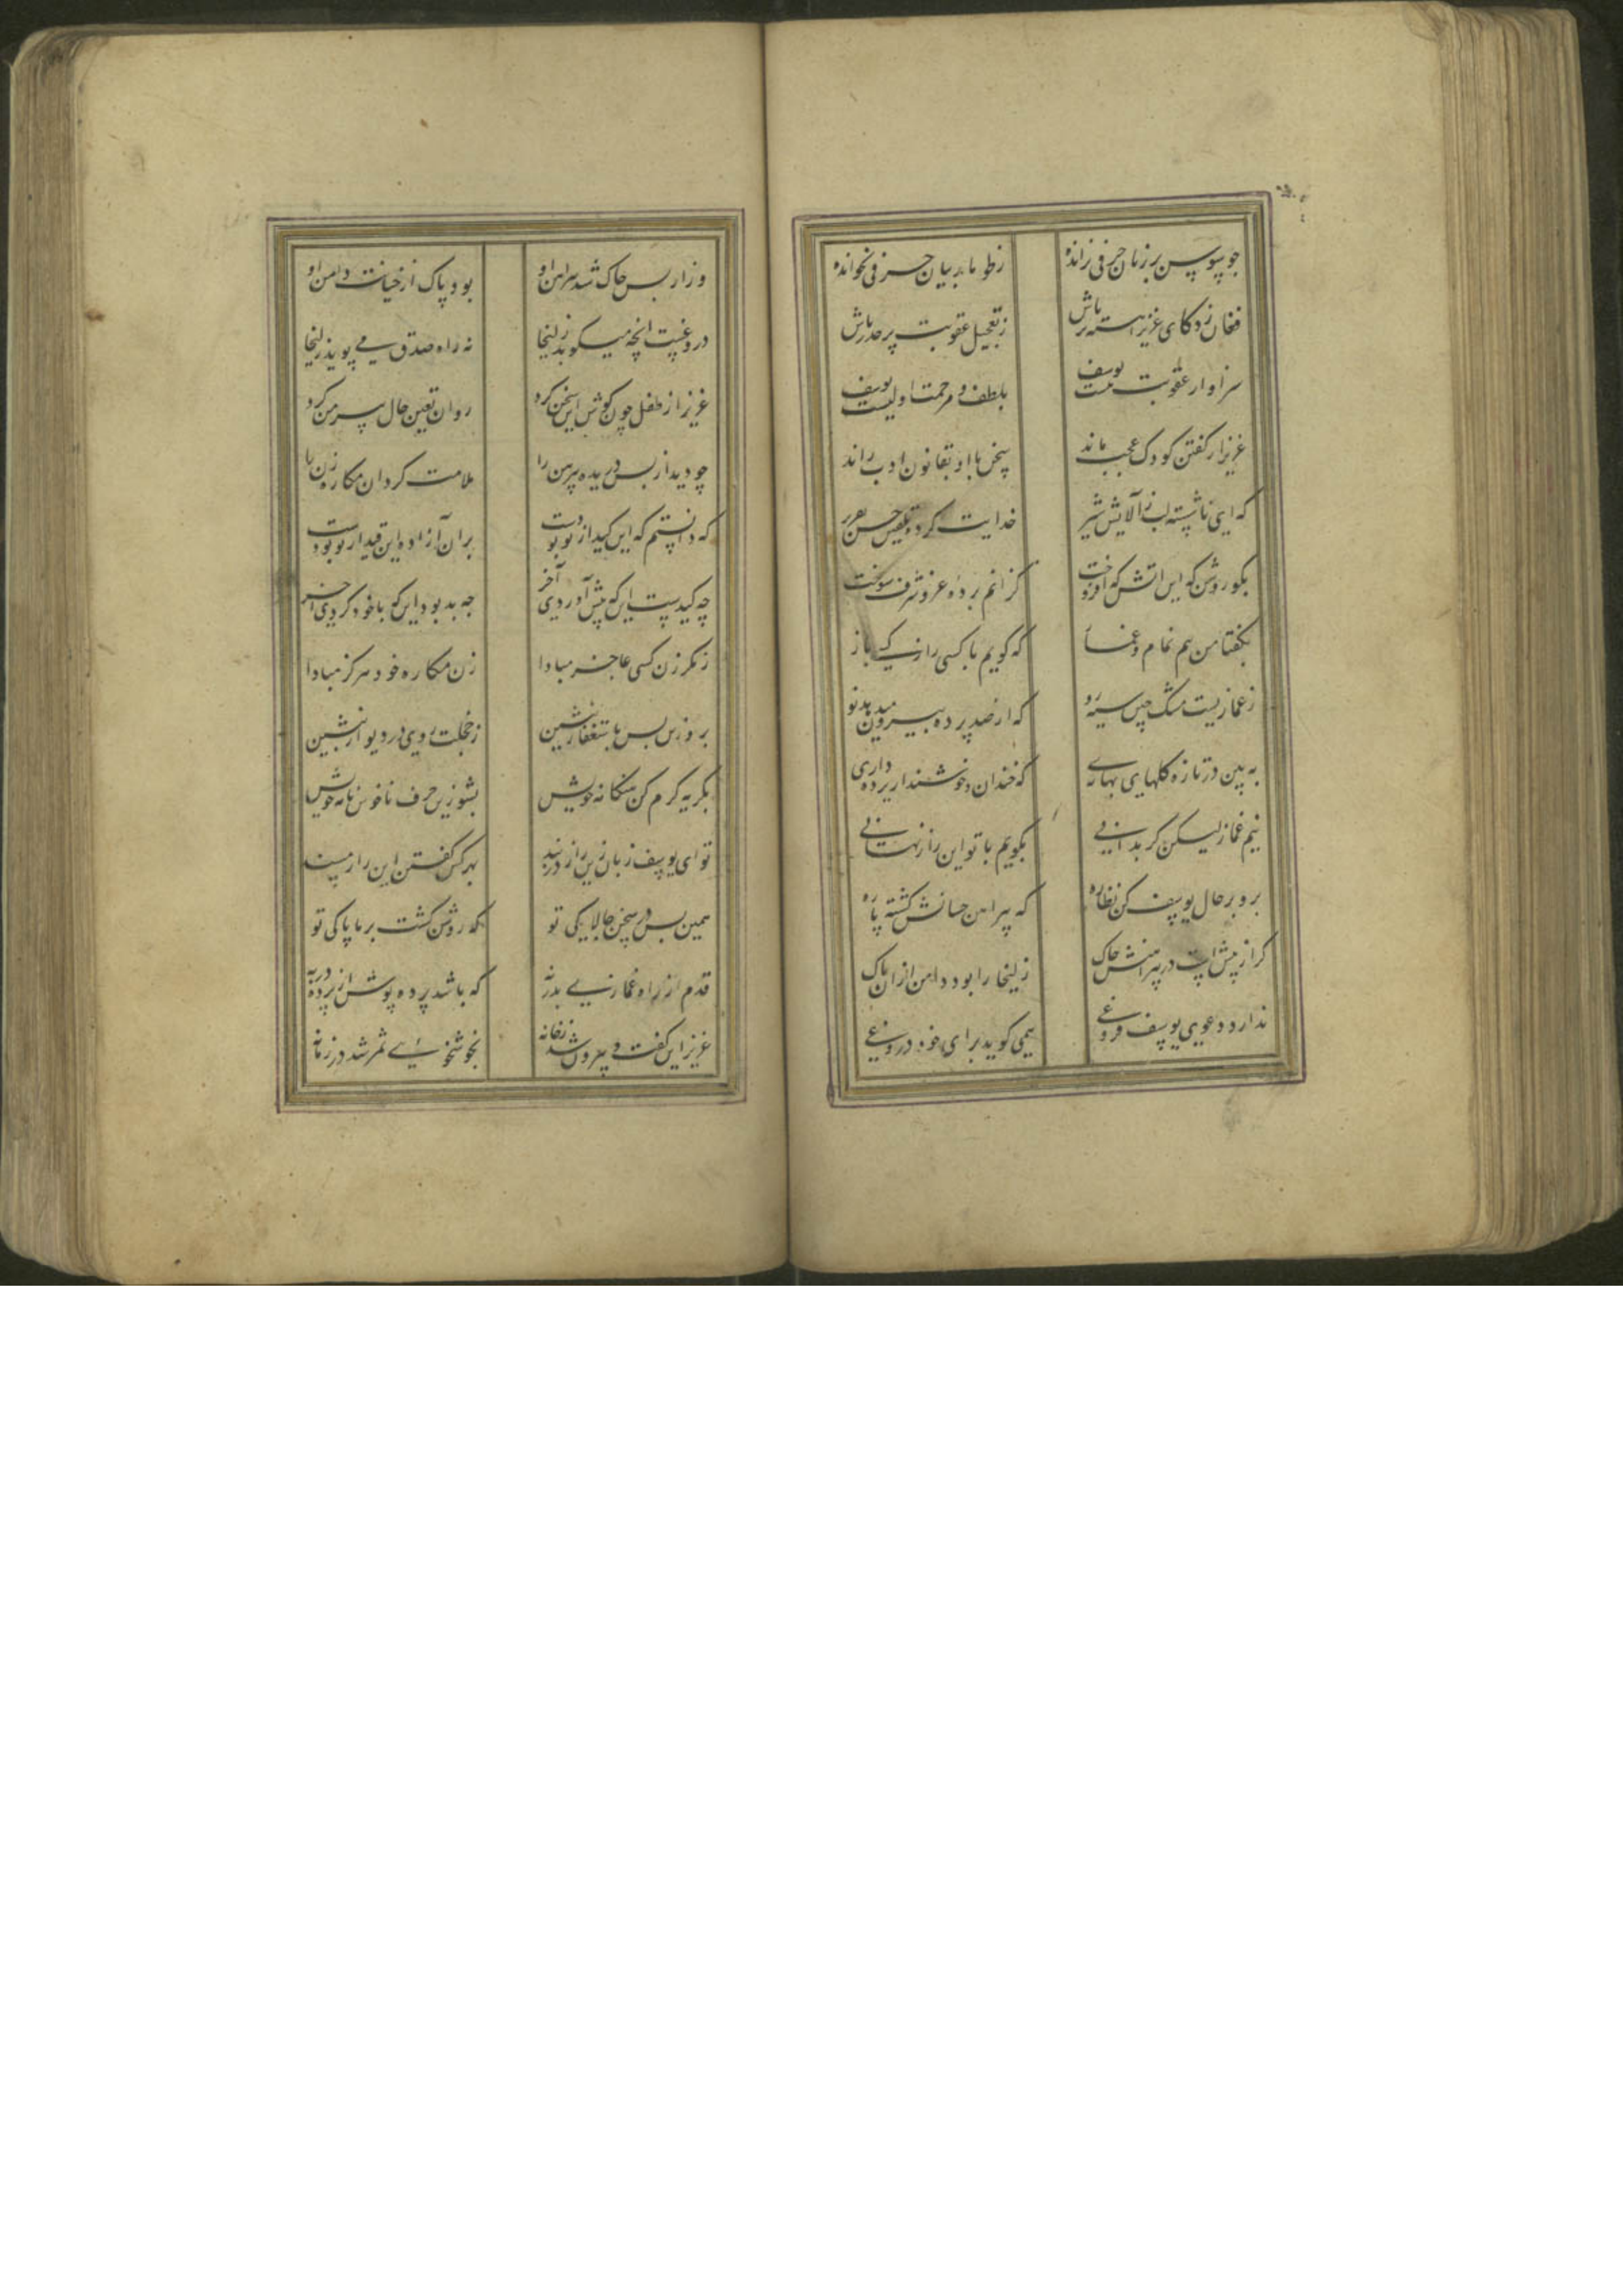 چو سوسن بر زبان حرفی نرانده ز طومار بیان حرفی نخوانده
فغان زد کای عزیز آهسته‌تر باش ز تعجیل عقوبت بر حذر باش
سزاوار عقوبت نیست یوسف بلطف و مرحمت اولیست یوسف
عزیز از گفتن کودک عجب ماند سخن با او بقانون ادب راند
که ای ناشسته لب ز آلایش شیر خدایت کرد تلقین حسن تقریر
بگو روشن که این آتش که افروخت کزانم پرده عز و شرف سوخت
بگفتا من نیم نمام و غماز که گویم با کسی راز کسی باز
ز غمازیست مشک چین سیه رو که از صد پرده بیرون میدهد بو
به بین در تازه گلهای بهاری که خندان و خوشند از پرده داری
نیم غماز لیکن گر بدانی بگویم با تو این راز نهانی
برو بر حال یوسف کن نظاره که پیراهن چسانش گشته پاره
گر از پیش است در پیراهنش چاک زلیخا را بود دامن از آن پاک
ندارد دعوی یوسف فروغی همی گوید برای خود دروغی
وز از پس چاک شد پیراهن او بود پاک از خیانت دامن او
دروغست انچه میگوید زلیخا نه راه صدق می پوید زلیخا
عزیز از طفل چون گوش این سخن کرد روان تعین حال پیرهن کرد
چو دید از پس دریده پیرهن را ملامت کرد آن مکاره زن را
که دانستم که این کید از تو بودست بر آن آزاده این قید از تو بودست
چه کیدست این که پیش آوردی آخر چه بد بود این که با خود کردی آخر
ز مکر زن کسی عاجز مبادا زن مکاره خود هرگز مبادا
برو زین پس باستغفار بنشین ز خجلت روی در دیوار بنشین
بگریه گرم کن هنگامه خویش بشو زین حرف ناخوش نامه خویش
تو ای یوسف زبان زین راز دربند بهر کس گفتن این راز مپسند
همین بس در سخن چالاکی تو که روشن گشت بر ما پاکی تو
قدم از راه غمازی بدر نه که باشد پرده پوش از پرده در به
عزیز این گفت و بیرون شد ز خانه بخوشخوئی سمر شد در زمانه